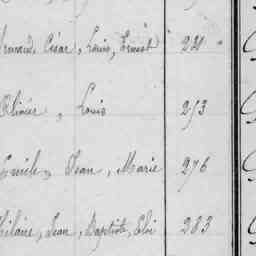 Armand, César, Louis, Ernest 220 "
Olivier, Louis 253
Emile, Jean, Marie 276
Hilaire, Jean, Baptiste, Eloi 283